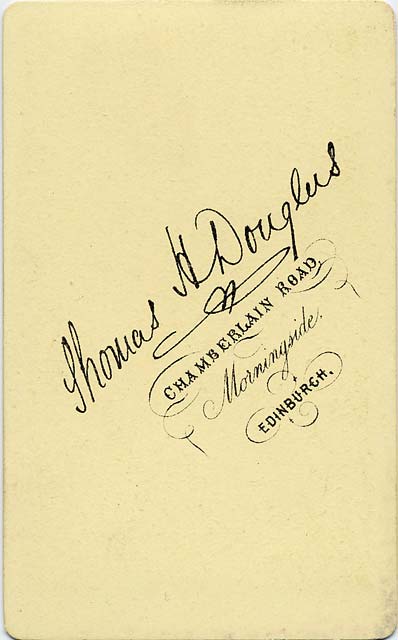 Thomas H Douglas
CHAMBERLAIN ROAD
Morningside.
EDINBURGH.